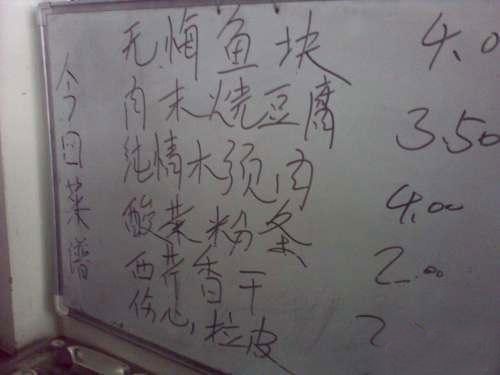 今日菜谱
无悔鱼块 4.0
肉末烧豆腐 3.50
纯情木须肉 4.00
酸菜粉条 2.00
西芹香干 2
伤心拉皮